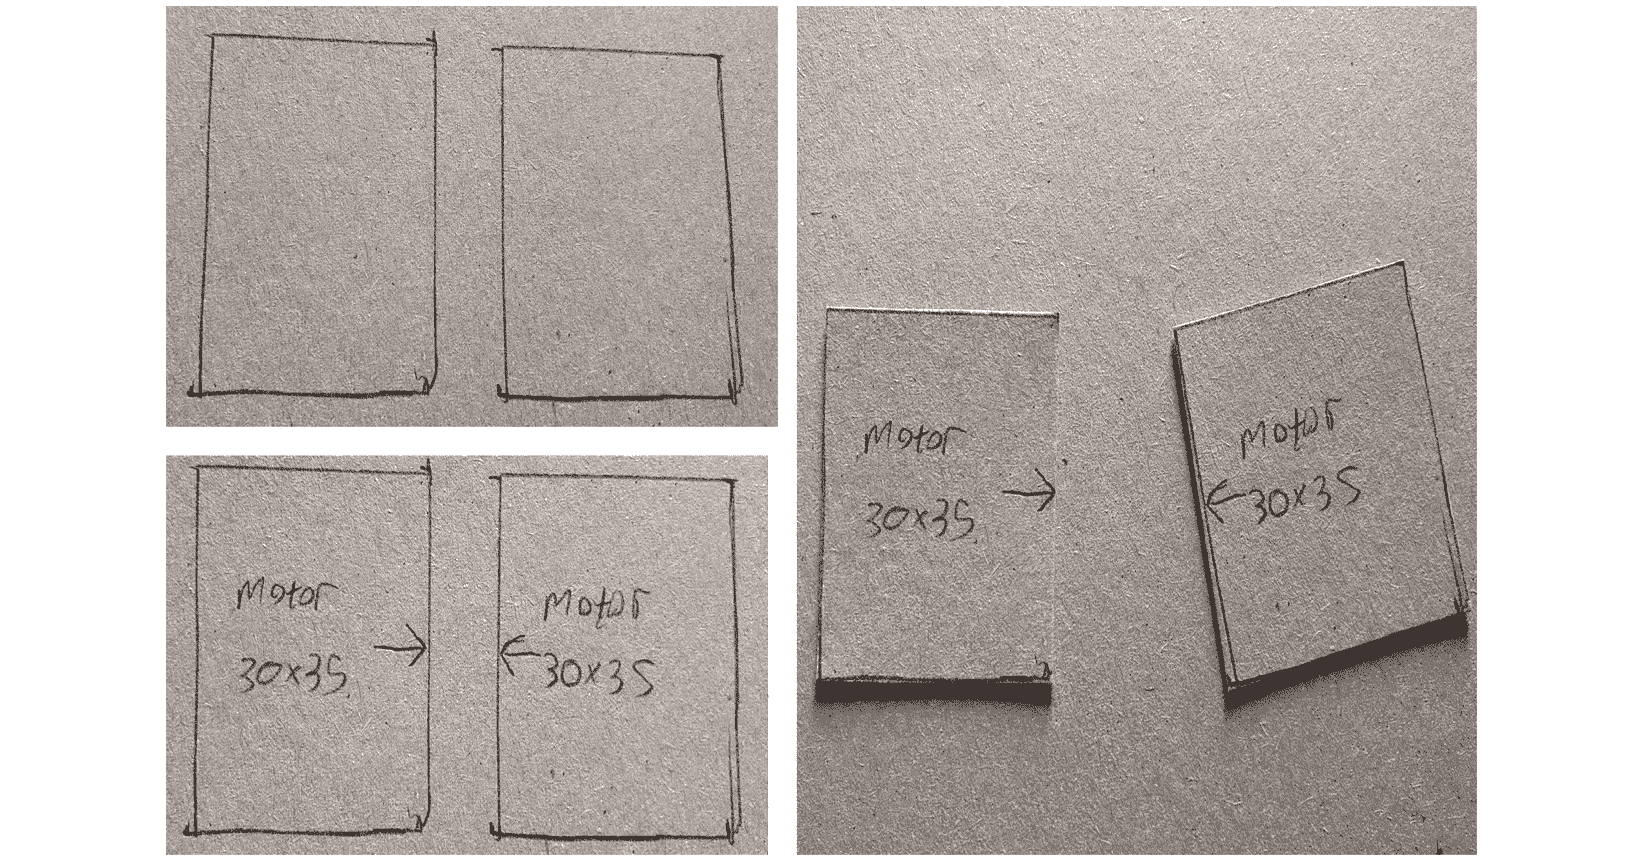 Motor
30x35
→
Motor
←
30x35
Motor
30x35
→
Motor
←
30x35